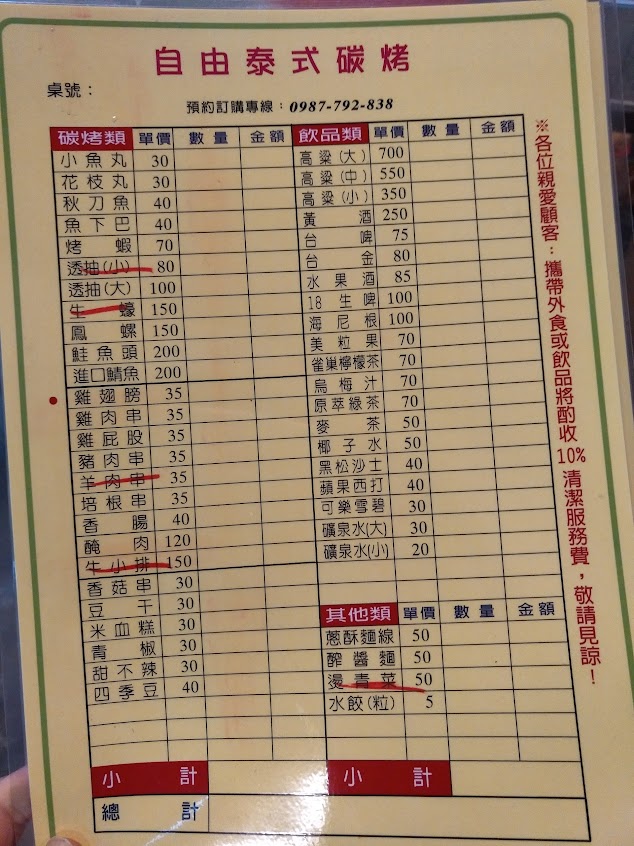 自由泰式碳烤
桌號：
預約訂購專線：0987-792-838
碳烤類 單價 數量 金額
小魚丸 30
花枝丸 30
秋刀魚 40
魚下巴 40
烤蝦 70
透抽(小) 80
透抽(大) 100
生蠔 150
鳳螺 150
鮭魚頭 200
進口鯖魚 200
雞翅膀 35
雞肉串 35
雞屁股 35
豬肉串 35
羊肉串 35
培根串 35
香腸 40
醃肉 120
牛小排 150
香菇串 30
豆干 30
米血糕 30
青椒 30
甜不辣 30
四季豆 40
小計
總計
飲品類 單價 數量 金額
高粱(大) 700
高粱(中) 550
高粱(小) 350
黃酒 250
台啤 75
台金 80
水果酒 85
18生啤 100
海尼根 100
美粒果 70
雀巢檸檬茶 70
烏梅汁 70
原萃綠茶 70
麥茶 50
椰子水 50
黑松沙士 40
蘋果西打 40
可樂雪碧 30
礦泉水(大) 30
礦泉水(小) 20
其他類 單價 數量 金額
蔥酥麵線 50
醡醬麵 50
燙青菜 50
水餃(粒) 5
小計
※各位親愛顧客：攜帶外食或飲品將酌收10%清潔服務費，敬請見諒！